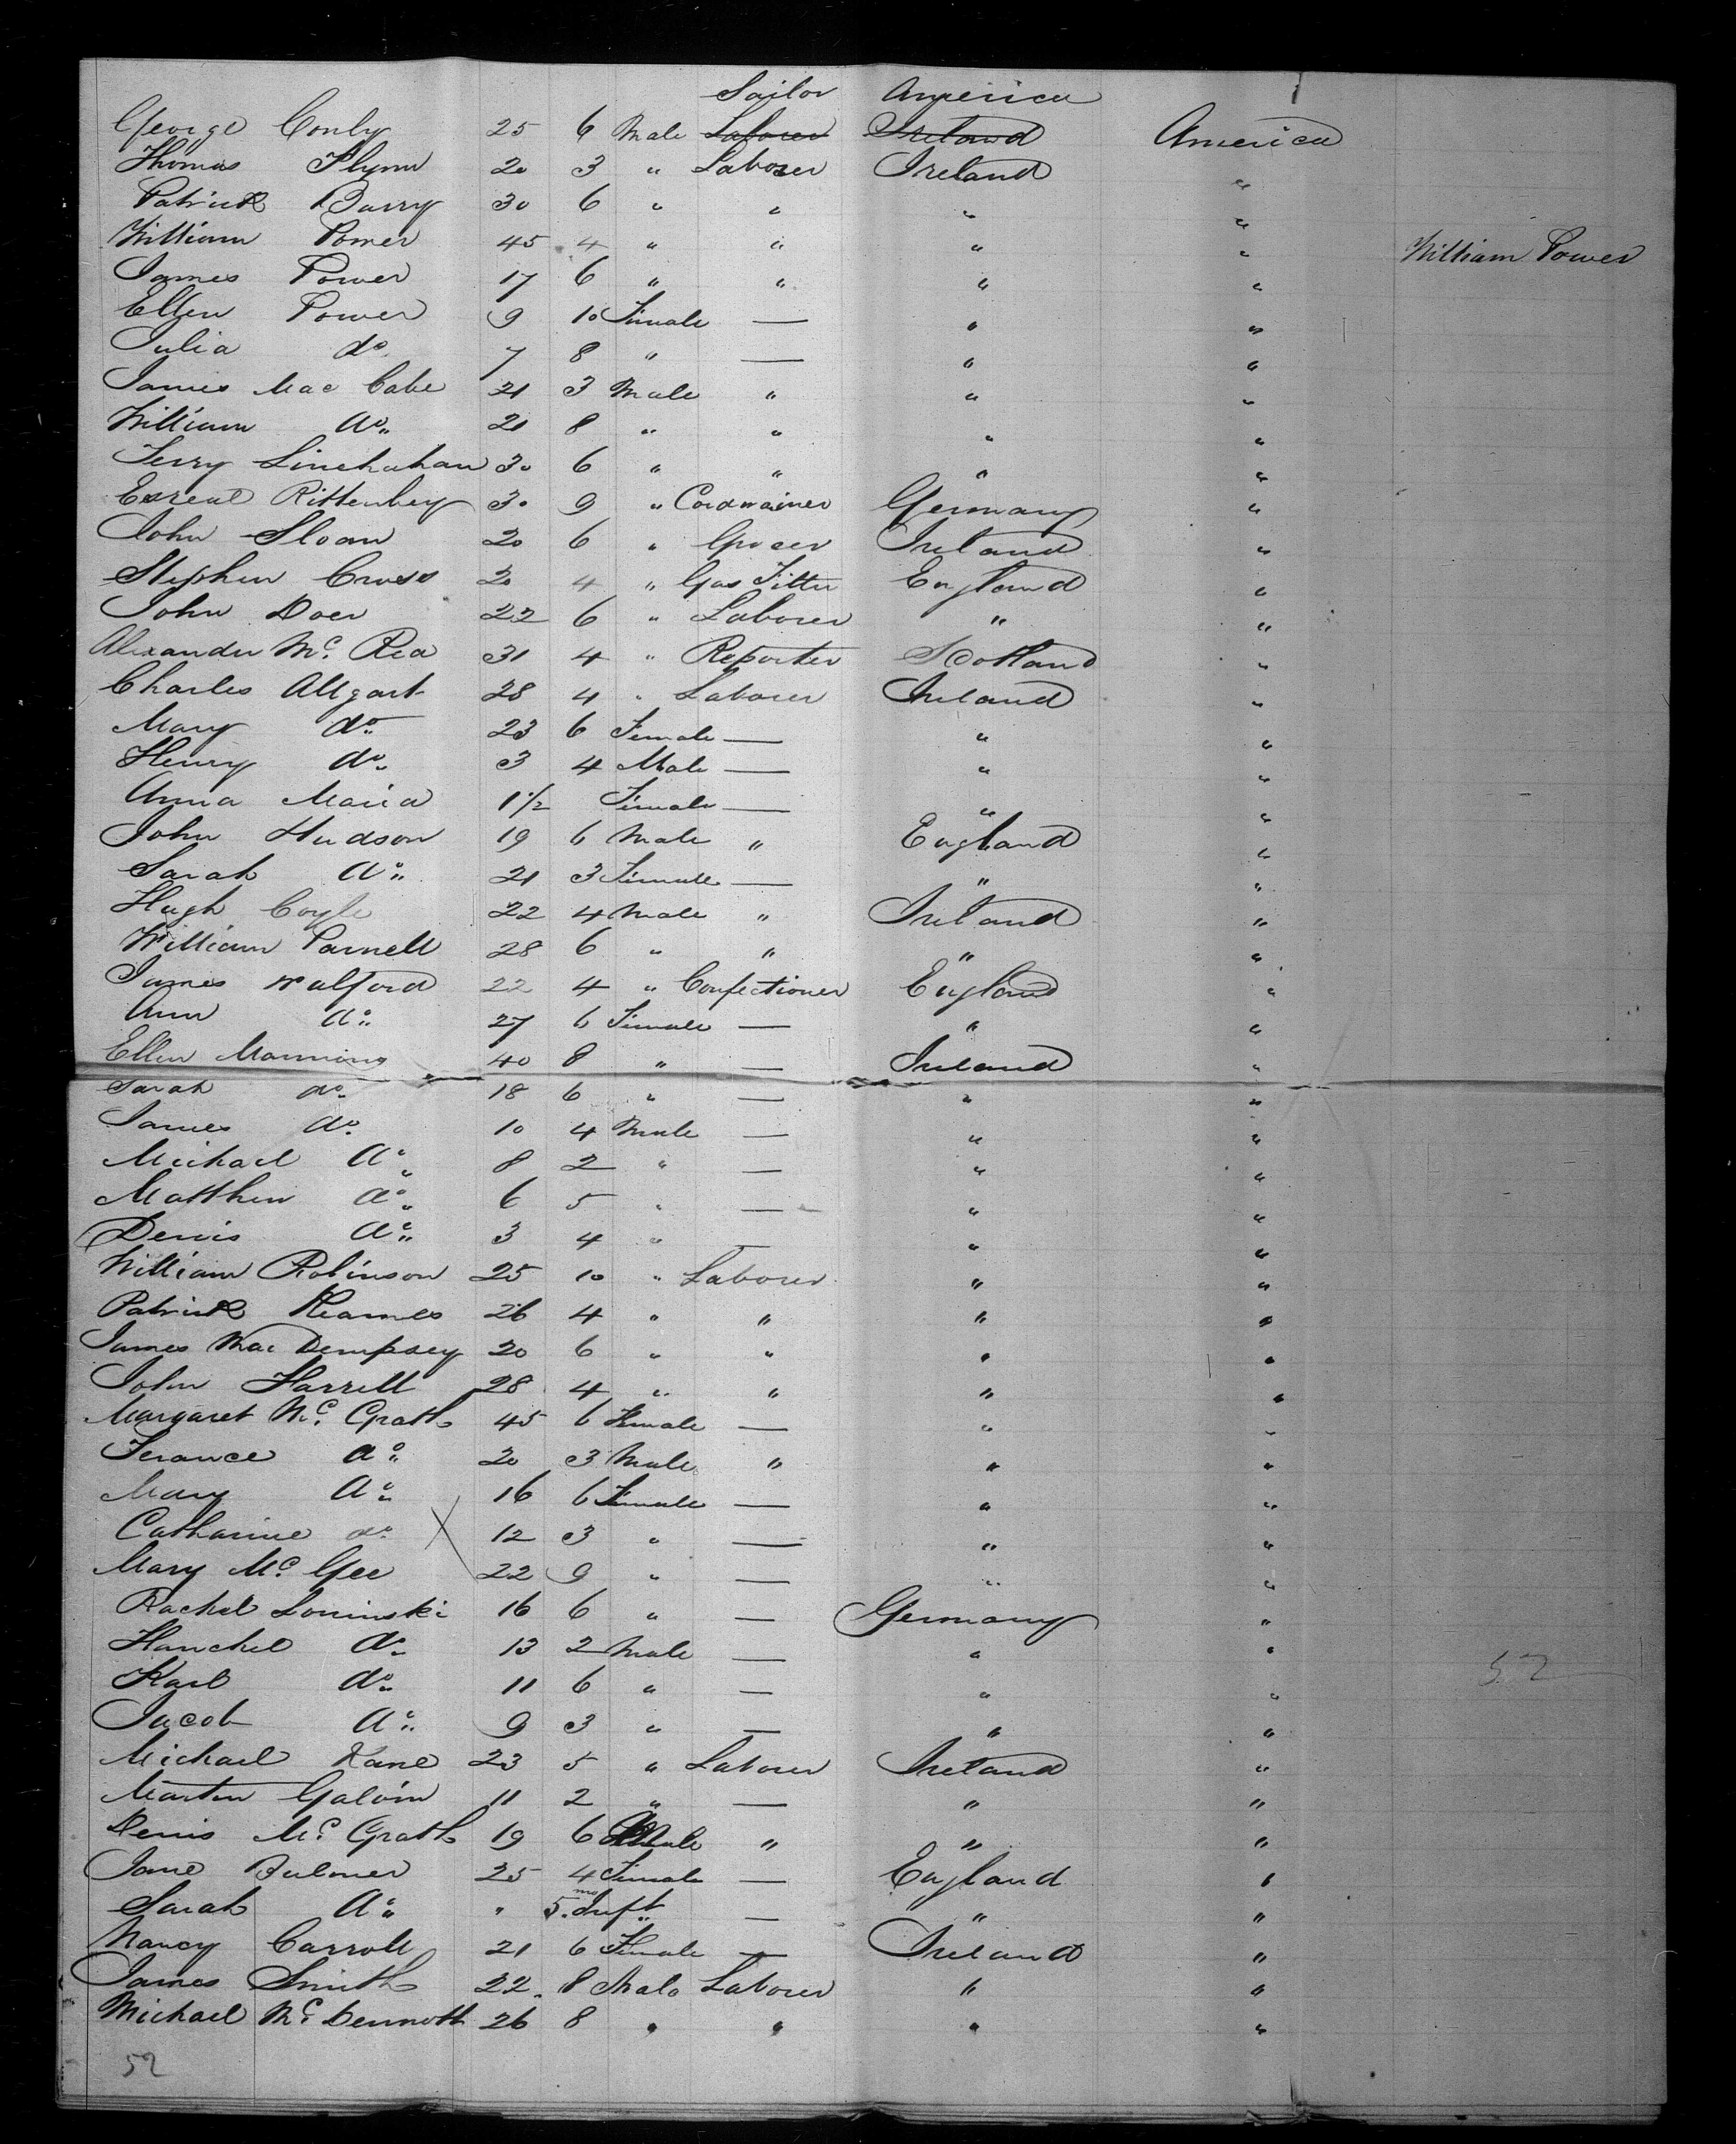 Sailor America
George Conly 25 6 Male Laborer Ireland America
Thomas Flynn 20 3 " Laborer Ireland "
Patrick Barry 30 6 " " " "
William Power 45 4 " " " " William Power
James Power 17 6 " " " "
Ellen Power 9 10 Female — " "
Julia do 7 8 " — " "
James Mac Cabe 21 3 Male " " "
William do 21 8 " " " "
Jerry Linehahan 30 6 " " " "
Esreal Rittenberg 30 9 " Cordwainer Germany "
John Sloan 20 6 " Grocer Ireland "
Stephen Cross 20 4 " Gas Fitter England "
John Doer 22 6 " Laborer " "
Alexander Mc Rea 31 4 " Reporter Scotland "
Charles Allgart 28 4 " Laborer Ireland "
Mary do 23 6 Female — " "
Henry do 3 4 Male — " "
Anna Maria 1 1/2 Female — " "
John Hudson 19 6 Male " England "
Sarah do 21 3 Female — " "
Hugh Coyle 22 4 Male " Ireland "
William Parnell 28 6 " " " "
James Walford 22 4 " Confectioner England "
Ann do 27 6 Female — " "
Ellen Manning 40 8 " — Ireland "
Sarah do 18 6 " — " "
James do 10 4 Male — " "
Michael do 8 2 " — " "
Matthew do 6 5 " — " "
Denis do 3 4 " — " "
William Robinson 25 10 " Laborer " "
Patrick Kearnes 26 4 " " " "
James Mac Dempsey 20 6 " " " "
John Harrell 28 4 " " " "
Margaret Mc Grath 45 6 Female — " "
Terance do 20 3 Male " " "
Mary do 16 6 Female — " "
Catharine do X 12 3 " — " "
Mary Mc Gee 22 9 " — " "
Rachel Loninski 16 6 " — Germany "
Hanchel do 13 2 Male — " "
Karl do 11 6 " — " " 52
Jacob do 9 3 " — " "
Michael Kane 23 5 " Laborer Ireland "
Martin Galvin 11 2 " — " "
Denis Mc Grath 19 6 Male " " "
Jane Bulmer 25 4 Female — England "
Sarah do " 5 mo Inft — " "
Nancy Carroll 21 6 Female — Ireland "
James Smith 22 8 Male Laborer " "
Michael Mc Dermott 26 8 " " " "
52